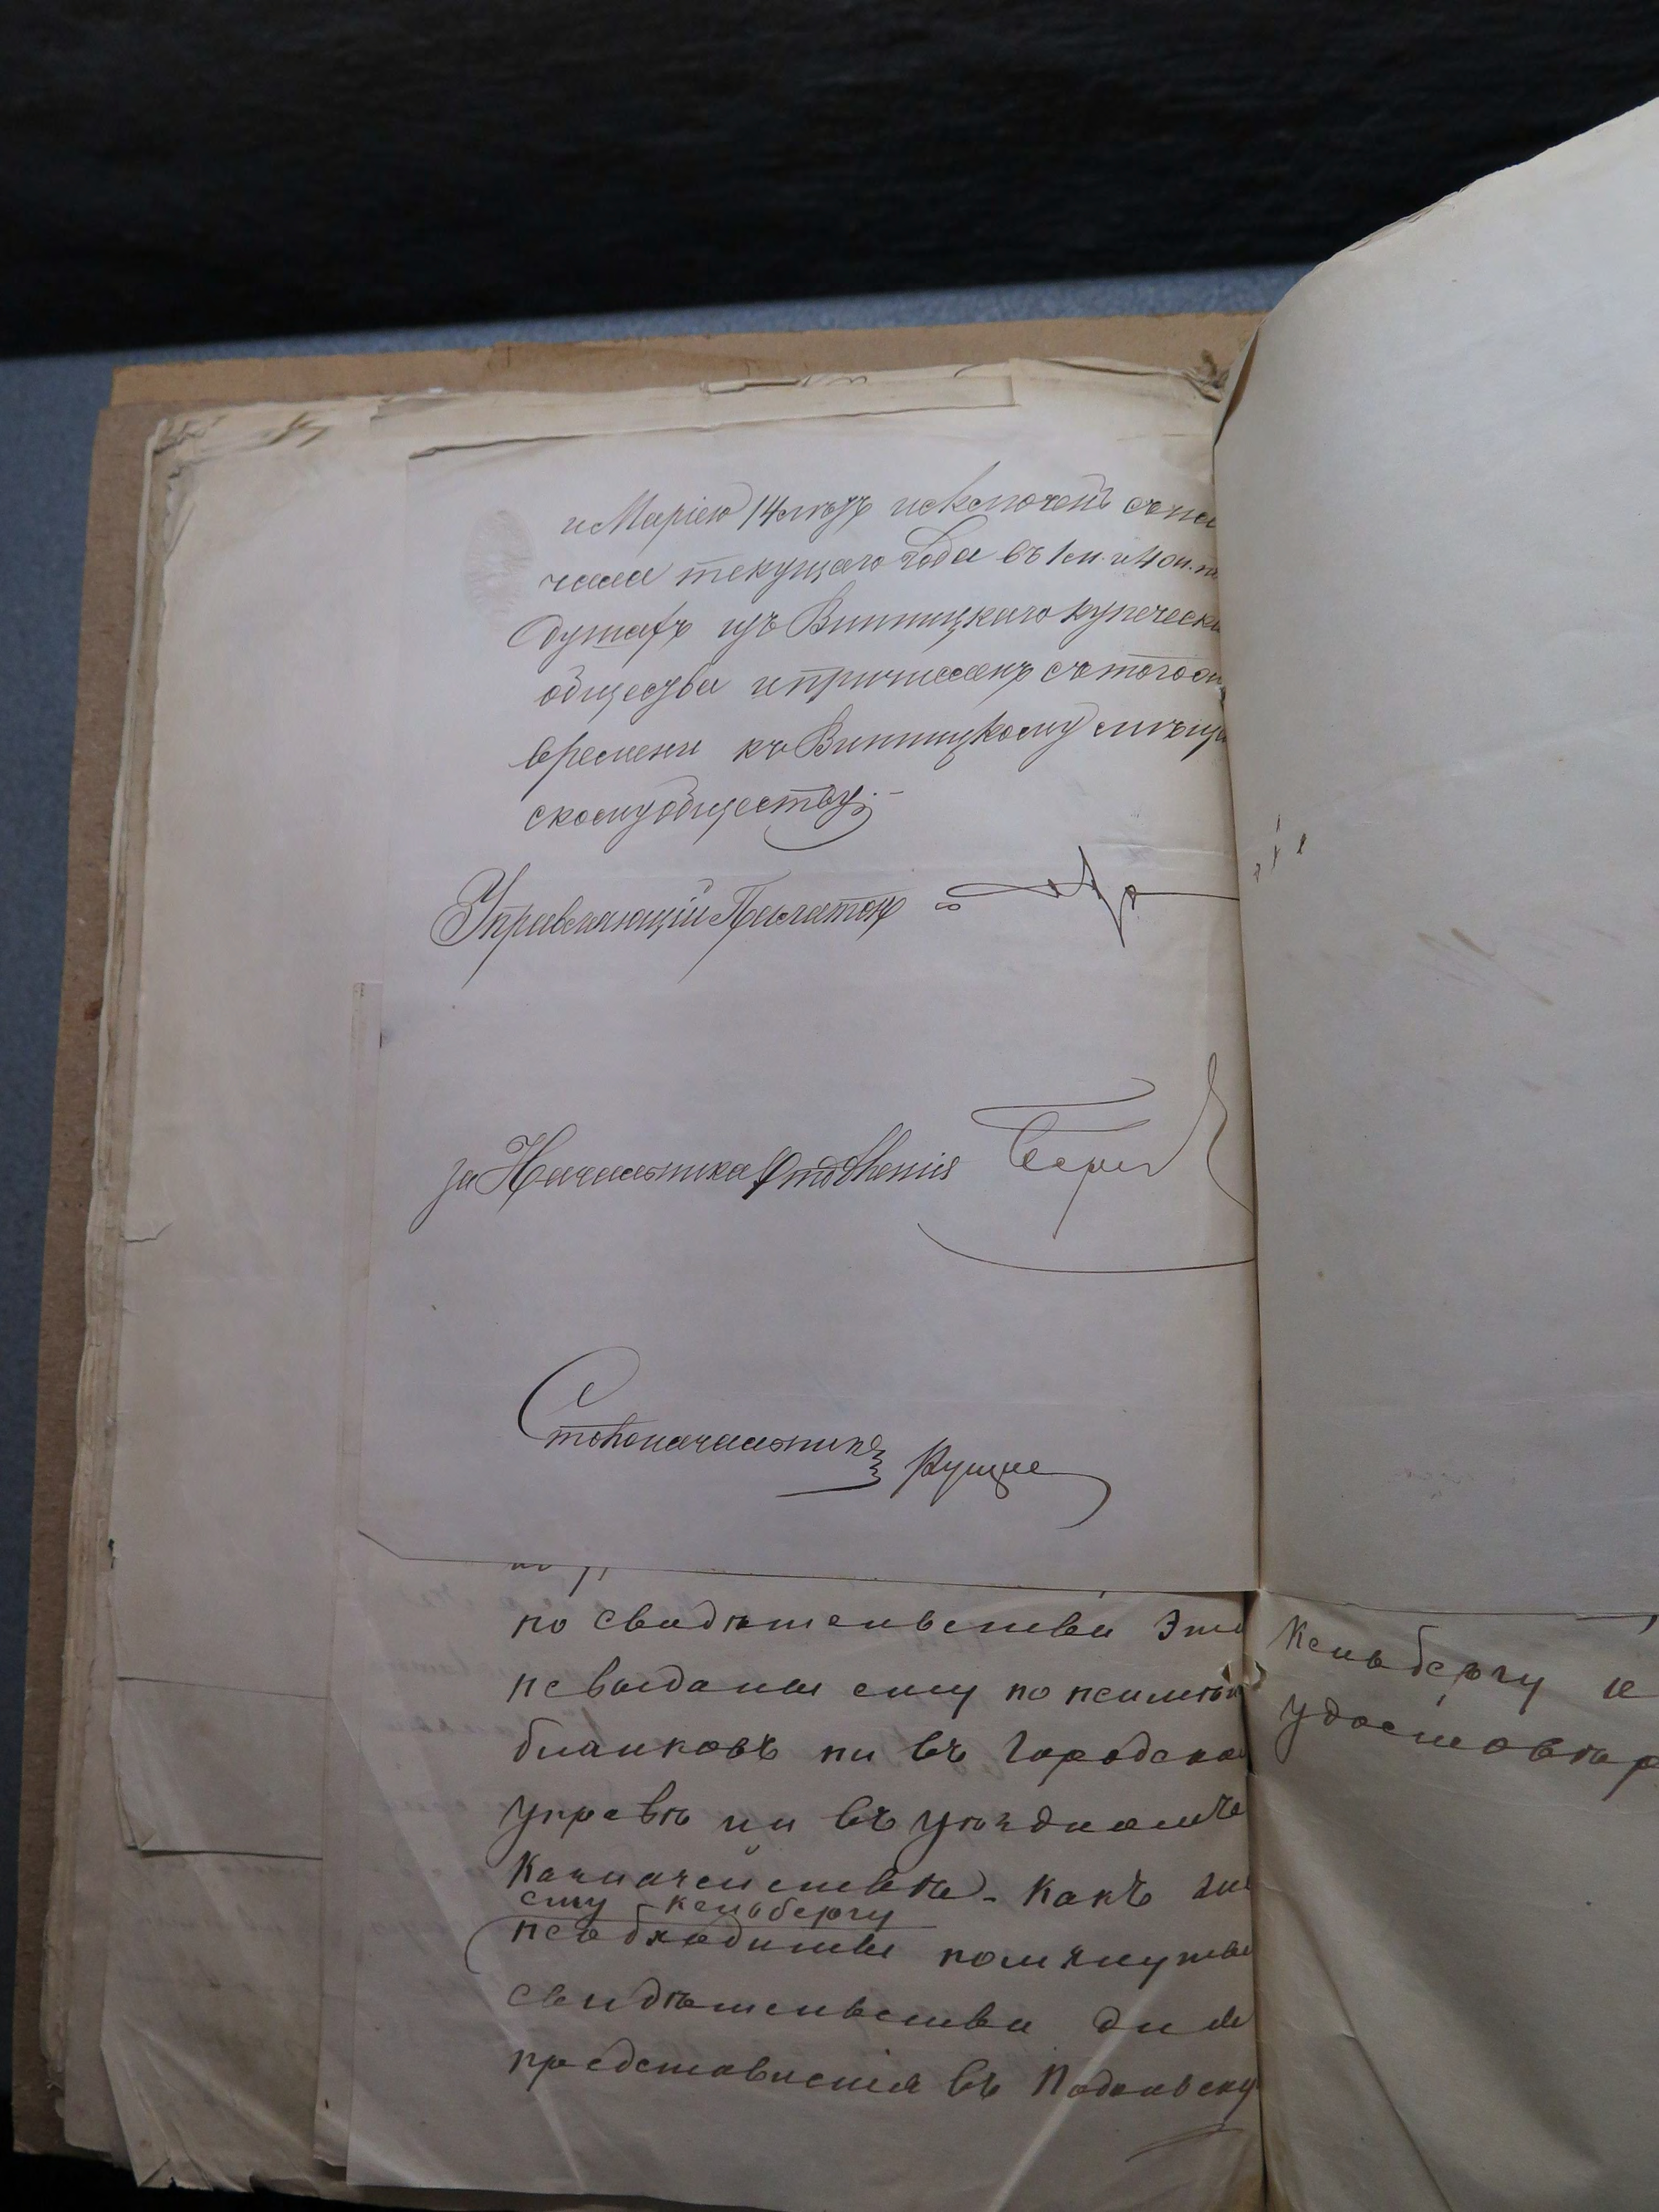 и Маріею 14 лѣтъ исключенъ съ на
чала текущаго года въ 1 м. и 4 ои. п
душахъ изъ Винницкаго купеческа
общества и причисленъ съ того ои
времени къ Винницкому мѣща
скому обществу.-
Управляющій Палатою
за Начальника Отдѣленія
Столоначальникъ
по свидѣтельства Это
не выданы ему по неимѣні
бланковъ ни въ Городской
Управѣ ни въ уѣздномъ
Казначействѣ. Какъ
ему Кельбергу
необходимы помянутыя
свидѣтельства для
представленія въ Подольску
Кельбергу и
удостовѣр